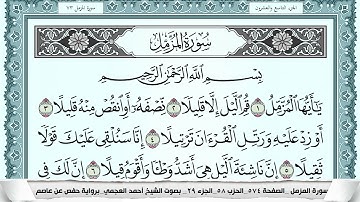 الجزء التاسع والعشرون
سورة المزمل ٧٣
سُورَةُ المُزَّمِّلِ
بِسْمِ اللَّهِ الرَّحْمَٰنِ الرَّحِيمِ
يَٰٓأَيُّهَا ٱلْمُزَّمِّلُ ١ قُمِ ٱلَّيْلَ إِلَّا قَلِيلًا ٢ نِّصْفَهُۥٓ أَوِ ٱنقُصْ مِنْهُ قَلِيلًا ٣
أَوْ زِدْ عَلَيْهِ وَرَتِّلِ ٱلْقُرْءَانَ تَرْتِيلًا ٤ إِنَّا سَنُلْقِى عَلَيْكَ قَوْلًا
ثَقِيلًا ٥ إِنَّ نَاشِئَةَ ٱلَّيْلِ هِىَ أَشَدُّ وَطْـًٔا وَأَقْوَمُ قِيلًا ٦ إِنَّ لَكَ فِى
سورة المزمل _ الصفحة ٥٧٤ _ الحزب ٥٨ _ الجزء ٢٩ _ بصوت الشيخ أحمد العجمي _ برواية حفص عن عاصم